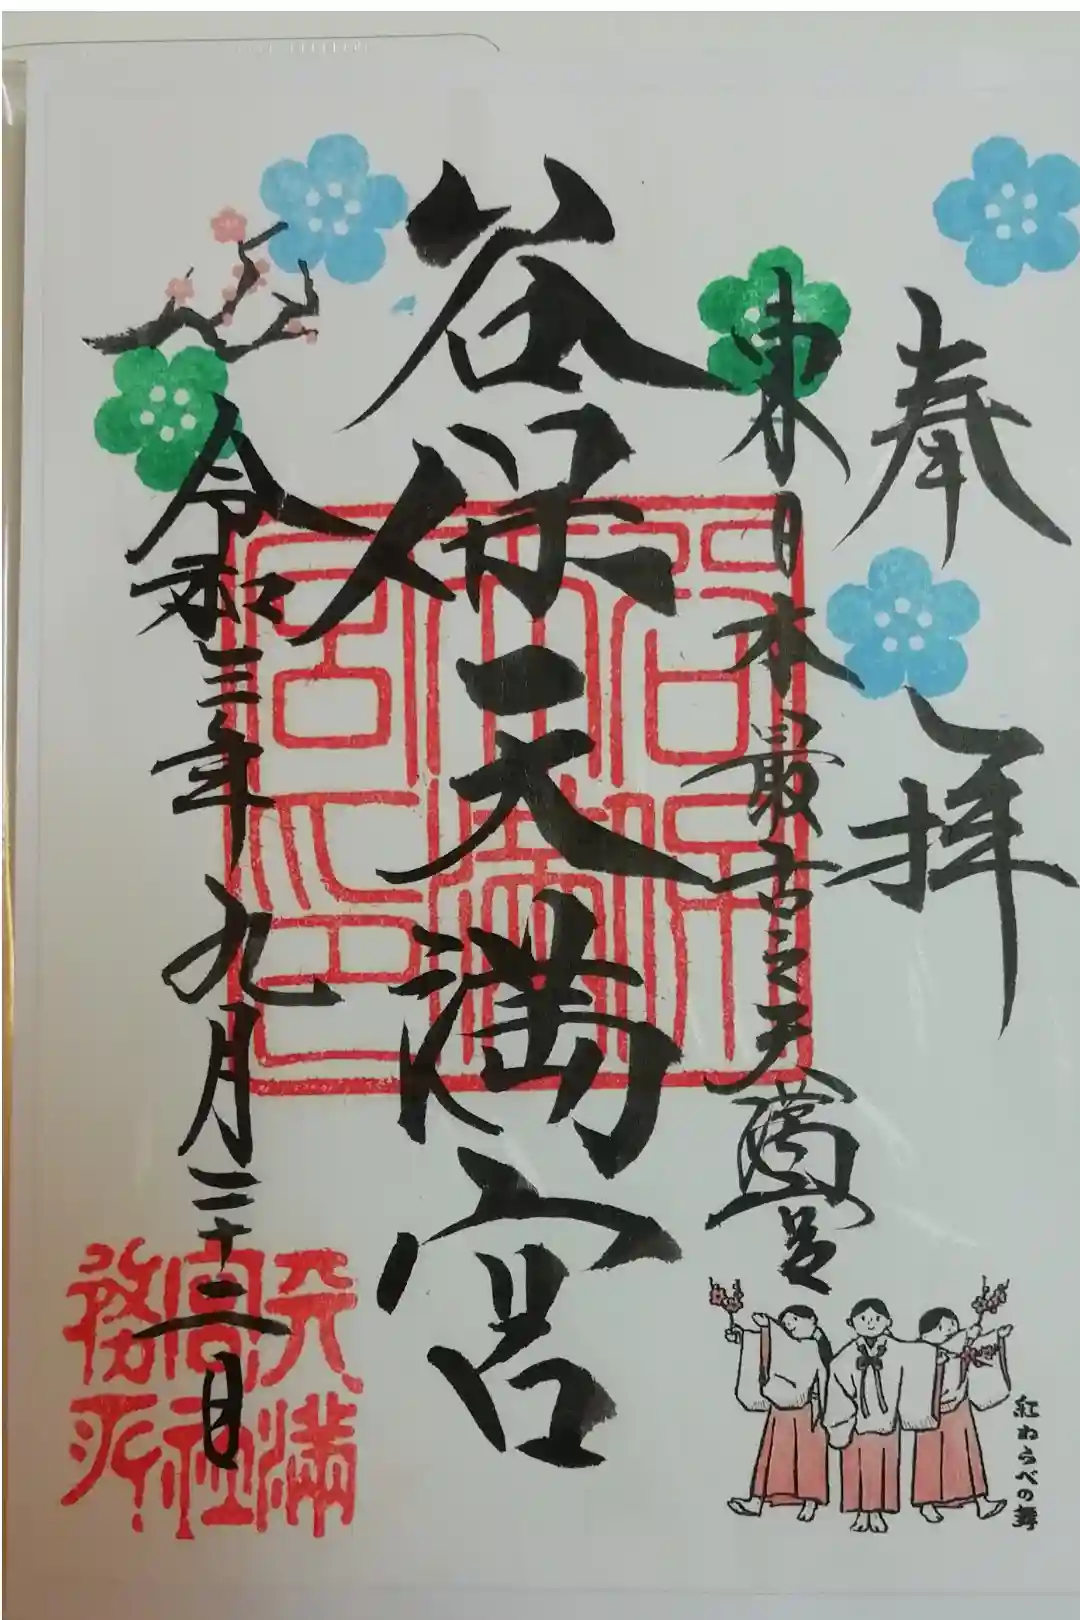 奉拝
東日本最古之天満宮
谷保天満宮
令和三年九月二十二日
天満宮社務所
紅わらべの舞